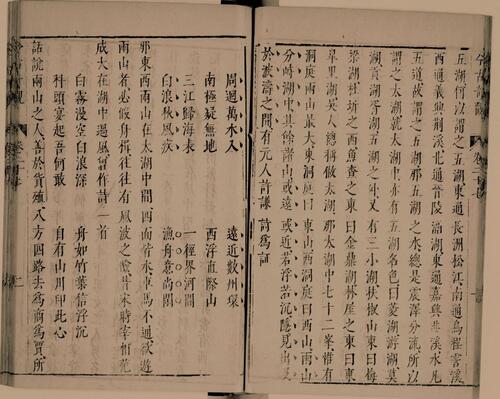 五湖何以謂之五湖東通長洲松江南通烏程霅溪
西通義興荊溪北通晉陵滆湖東通嘉興韭溪水凡
五道故謂之五湖那五湖之水總是震澤分流所以
謂之太湖就太湖中亦有五湖名色曰菱湖游湖莫
湖貢湖胥湖五湖之外又有三小湖扶椒山東曰梅
梁湖杜圻之西魚查之東曰金鼎湖林屋之東曰東
皋里湖吳人總稱做太湖那太湖中七十二峯惟有
洞庭兩山最大東洞庭曰東山西洞庭曰西山兩山
分峙湖中其餘諸山或遠或近若浮若沉隱見出沒
於波濤之間有元人許謙詩爲証
周廻萬水入 遠近數州環
南極疑無地 西浮直際山
三江歸海表 一徑界河間
白浪秋風疾 漁舟意尚閒
那東西兩山在太湖中間四面皆水車馬不通欲遊
兩山者必假舟楫往往有風波之險昔宋時宰相范
成大在湖中遇風曾作詩一首
白霧漫空白浪深 舟如竹葉信浮沉
科頭宴起吾何敢 自有山川印此心
話說兩山之人善於貨殖八方四路去爲商爲賈所